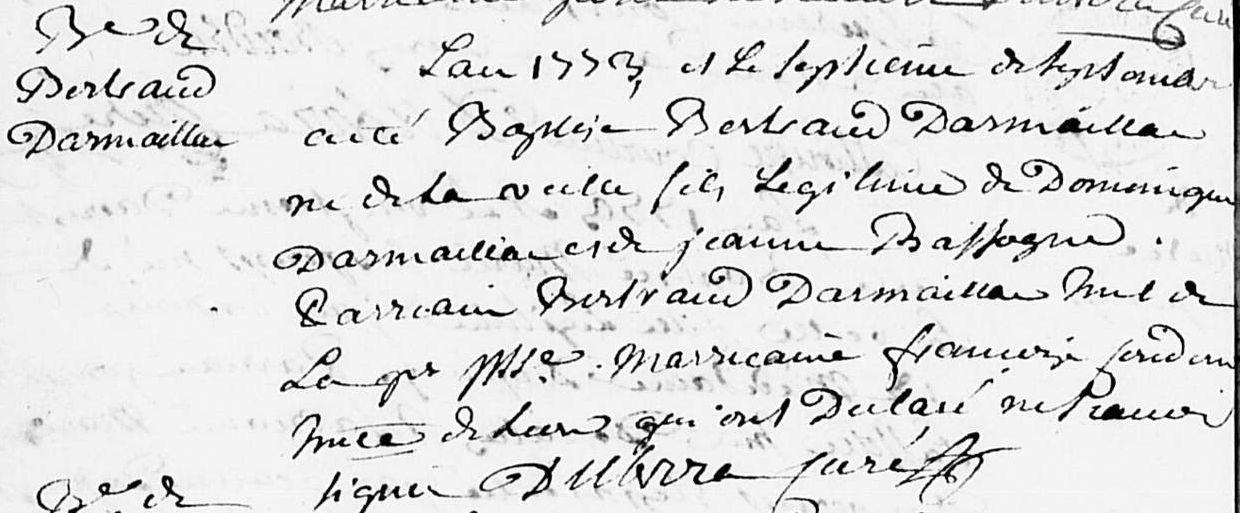 Be de
Bertraud
Darmaillac
Lan 1773, et le septieme de septembre
a été Baptisé Bertraud Darmaillac
né de la veille fils Legitime de Dominique
Darmaillac et de jeanne Bassagne .
Parrain Bertraud Darmaillac hnt de
La pr psse. Marraine françoise
hnte de qui ont Declaré ne scavoir
signer Duberra curé
Be de